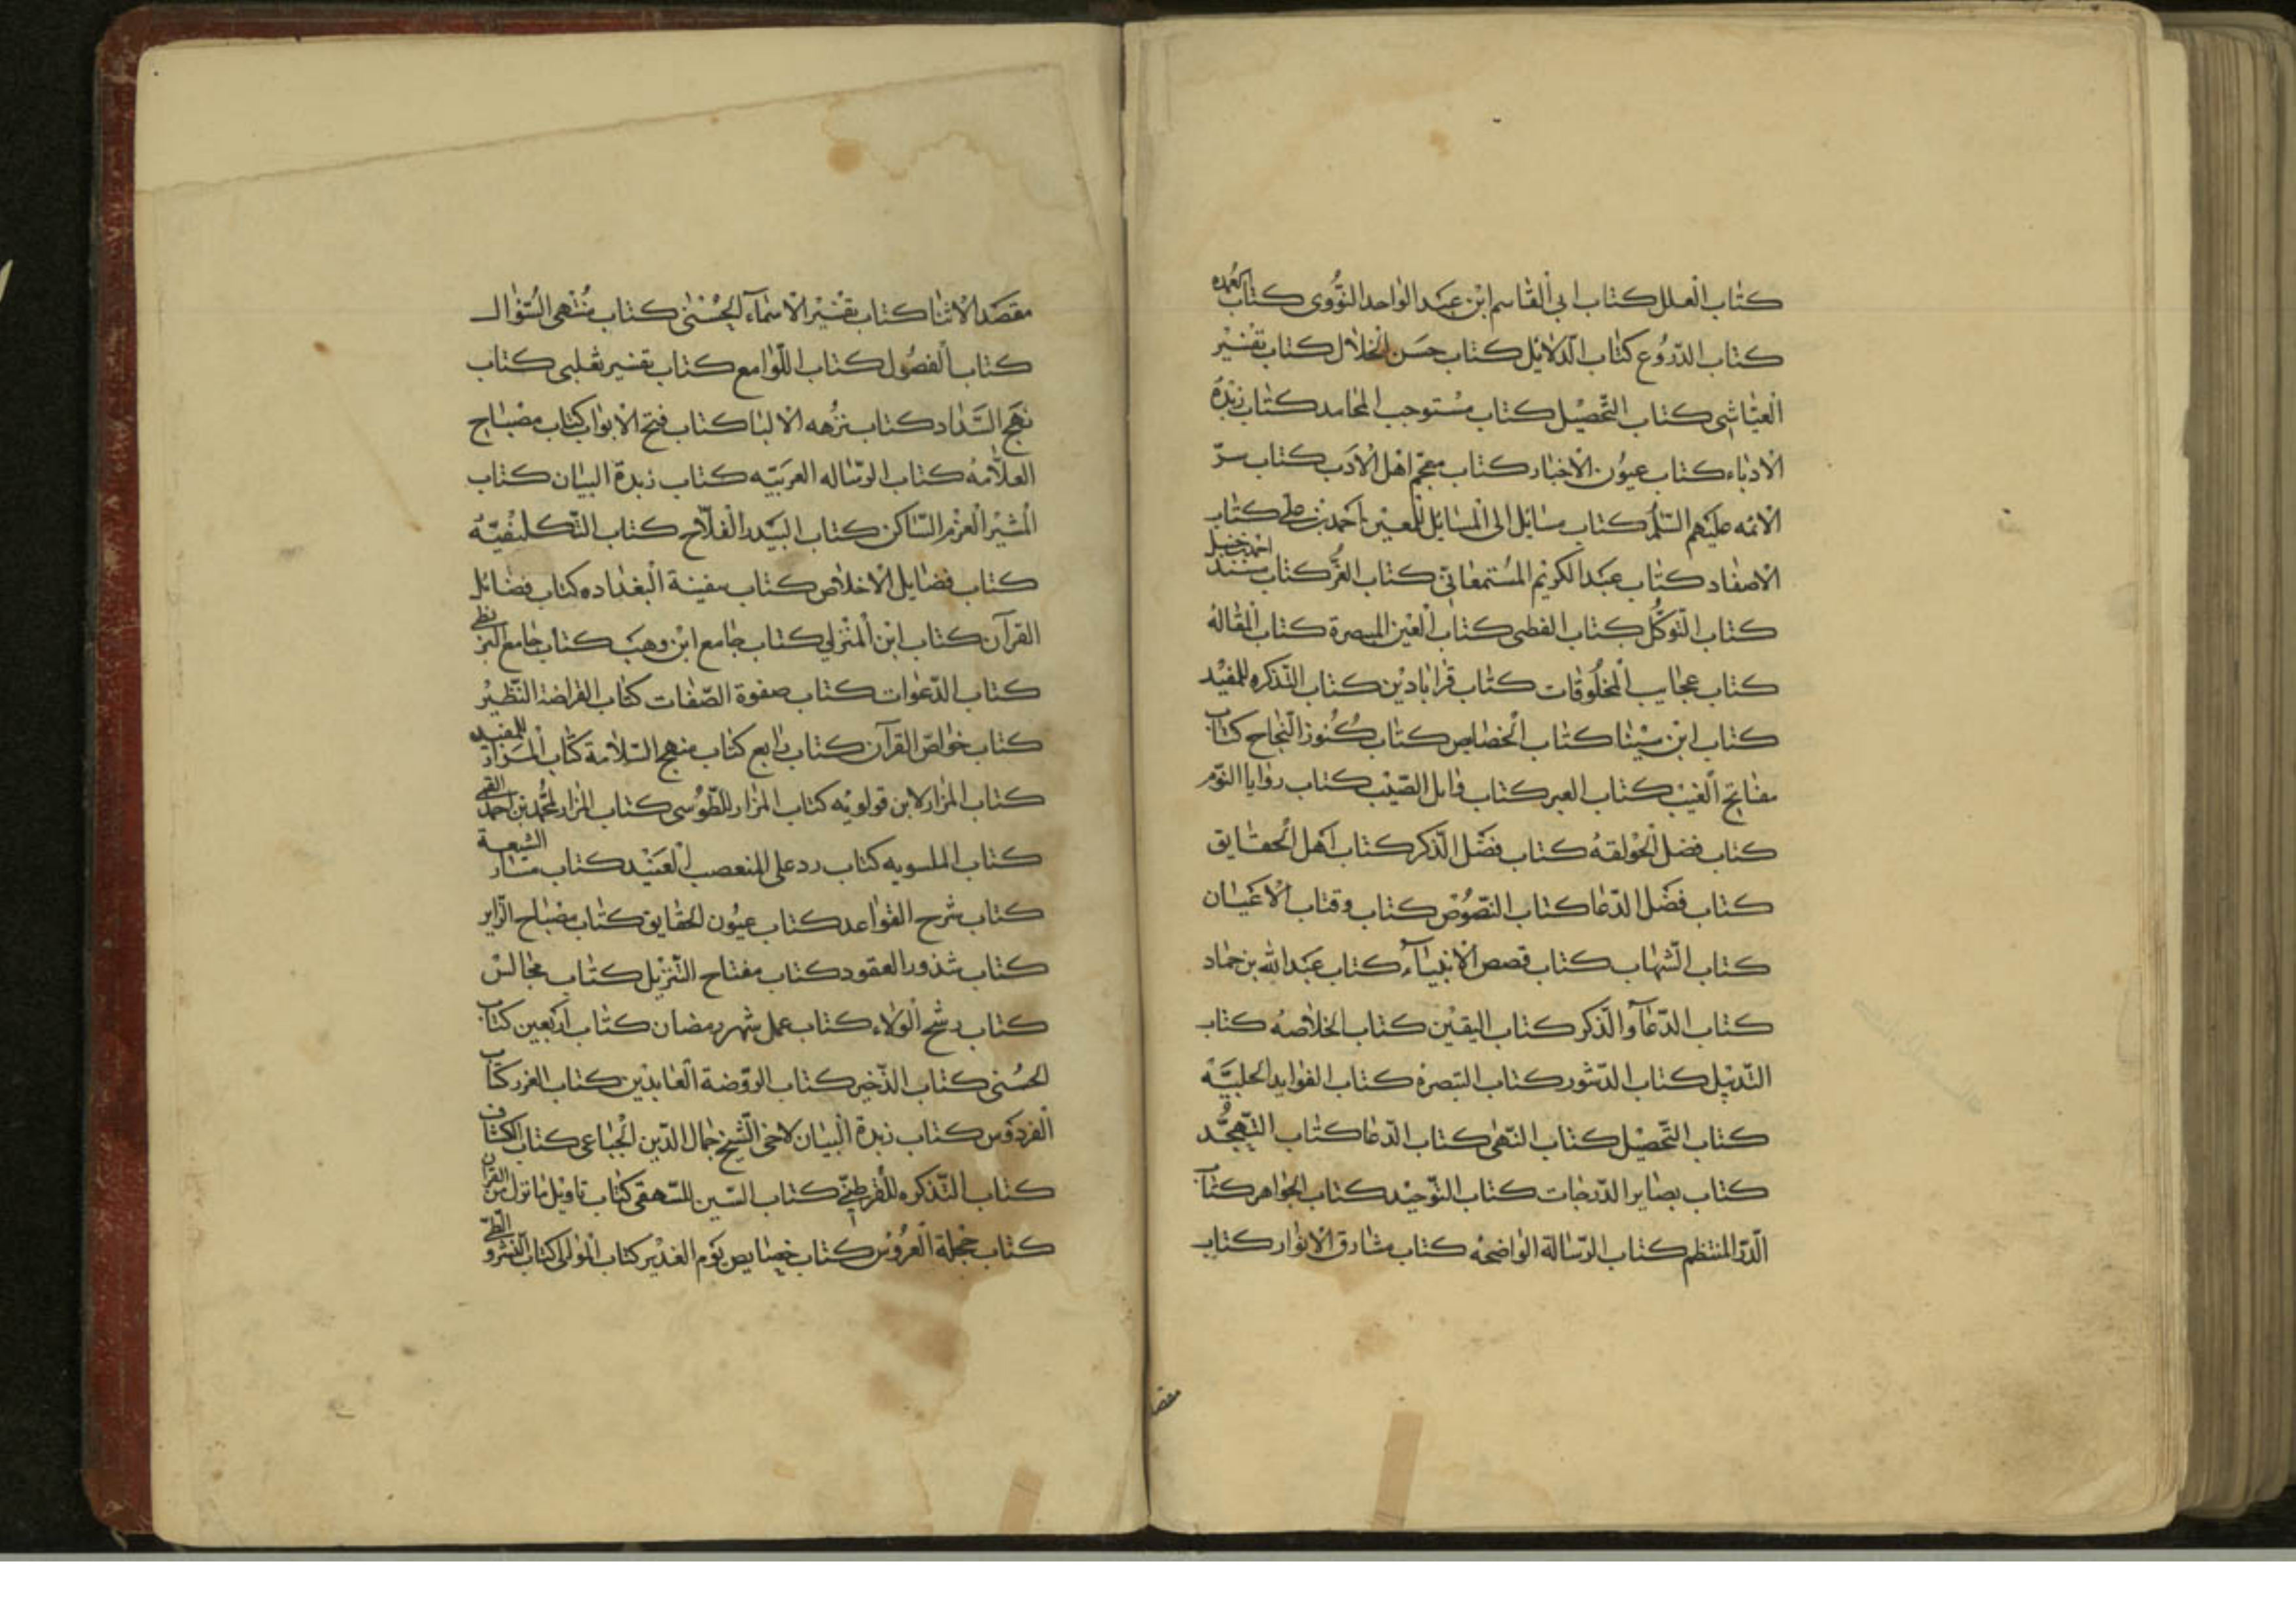 كتاب العلل كتاب ابي القاسم ابن عبد الواحد النووى كتاب العمده
كتاب الدروع كتاب الدلائل كتاب حسن الخلال كتاب تفسير
العياشى كتاب التحصيل كتاب مستوجب المحامد كتاب زبدة
الادباء كتاب عيون الاخبار كتاب معجم اهل الادب كتاب سر
الائمه عليهم السلم كتاب مسائل الى المسائل احمد بن على كتاب
الاصفاد كتاب عبد الكريم كتاب الغر كتاب مسند احمد بن حنبل
كتاب التوكل كتاب القطى كتاب العين المبصرة كتاب المقاله
كتاب عجايب المخلوقات كتاب قراباد ين كتاب التذكره للمفيد
كتاب ابن سينا كتاب الخصايص كتاب كنوز النجاح كتاب
مفاتح الغيب كتاب العبر كتاب وابل الصيب كتاب روايا النوم
كتاب فضل الحولقه كتاب فضل الذكر كتاب اهل الحقايق
كتاب فضل الدعا كتاب النصوص كتاب وفيات الاعيان
كتاب الشهاب كتاب قصص الانبياء كتاب عبد الله بن حماد
كتاب الدعآ والذكر كتاب اليقين كتاب الخلاصه كتاب
التذييل كتاب الدثور كتاب التبصرة كتاب الفوايد الجلية
كتاب التحصيل كتاب النهى كتاب الدعا كتاب التهجد
كتاب بصاير الدرجات كتاب التوحيد كتاب الجواهر كتاب
الدر المنتظم كتاب الرسالة الواضحه كتاب مشارق الانوار كتاب
مقصد
مقصد الاثنا كتاب تفسير الاسمآء الحسنى كتاب منتهى السؤال
كتاب الفصول كتاب اللوامع كتاب تفسير ثعلبى كتاب
نهج السداد كتاب نزهه الالبا كتاب فتح الابواب كتاب مصباح
العلامة كتاب الرساله العربيه كتاب زبدة البيان كتاب
المثير العزم الساكن كتاب البيدر الفلاح كتاب التكليفيه
كتاب فضايل الاخلاص كتاب سفينة البغداده كتاب فضائل
القرآن كتاب ابن كتاب جامع ابن وهب كتاب جامع البزنطي
كتاب الدعوات كتاب صفوة الصفات كتاب القراضة النظير
كتاب خواص القرآن كتاب كتاب منهج السلامة كتاب المزار للمفيد
كتاب المزار لابن قولويه كتاب المزار للطوسى كتاب المزار لمحمد بن احمد القمى
كتاب كتاب رد على المتعصب العنيد كتاب مسار الشيعة
كتاب شرح القواعد كتاب عيون الحقايق كتاب مصباح الزاير
كتاب شذور العقود كتاب مفتاح التنزيل كتاب مجالس
كتاب رشح الولاء كتاب عمل شهر رمضان كتاب اربعين كتاب
الحسنى كتاب الذخير كتاب الروضة العابدين كتاب الغرر كتاب
الفردوس كتاب زبدة البيان لاخى الشيخ جمال الدين الجباعى كتاب الكشاف
كتاب التذكره للقرطبى كتاب كتاب تاويل ما نزل من القرآن
كتاب حجلة العروس كتاب خصايص يوم الغدير كتاب كتاب النشر والطى